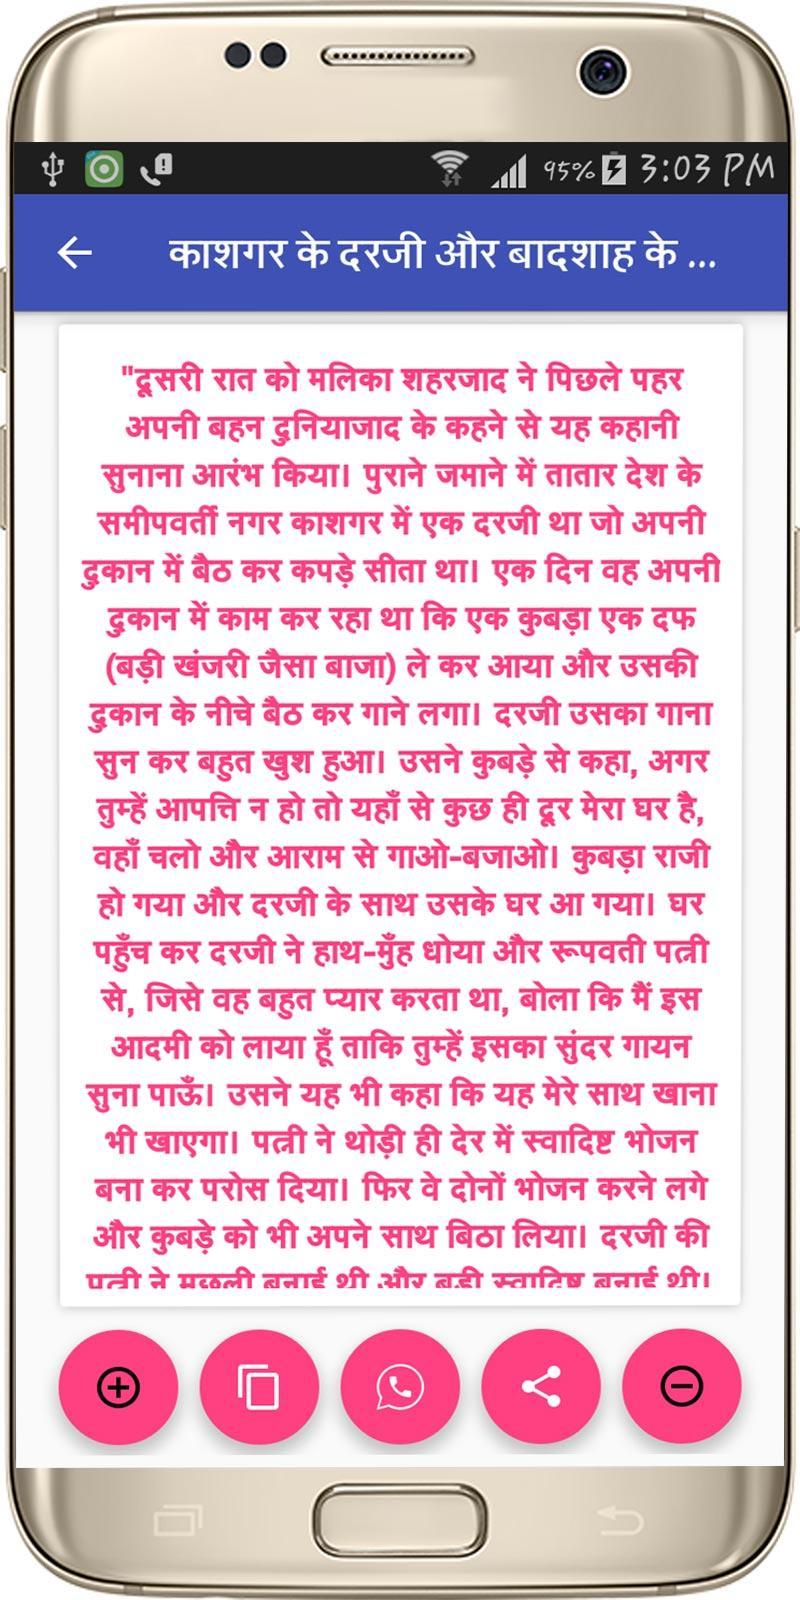 95% 3:03 PM
काशगर के दरजी और बादशाह के ...
"दूसरी रात को मलिका शहरजाद ने पिछले पहर
अपनी बहन दुनियाजाद के कहने से यह कहानी
सुनाना आरंभ किया। पुराने जमाने में तातार देश के
समीपवर्ती नगर काशगर में एक दरजी था जो अपनी
दुकान में बैठ कर कपड़े सीता था। एक दिन वह अपनी
दुकान में काम कर रहा था कि एक कुबड़ा एक दफ
(बड़ी खंजरी जैसा बाजा) ले कर आया और उसकी
दुकान के नीचे बैठ कर गाने लगा। दरजी उसका गाना
सुन कर बहुत खुश हुआ। उसने कुबड़े से कहा, अगर
तुम्हें आपत्ति न हो तो यहाँ से कुछ ही दूर मेरा घर है,
वहाँ चलो और आराम से गाओ-बजाओ। कुबड़ा राजी
हो गया और दरजी के साथ उसके घर आ गया। घर
पहुँच कर दरजी ने हाथ-मुँह धोया और रूपवती पत्नी
से, जिसे वह बहुत प्यार करता था, बोला कि मैं इस
आदमी को लाया हूँ ताकि तुम्हें इसका सुंदर गायन
सुना पाऊँ। उसने यह भी कहा कि यह मेरे साथ खाना
भी खाएगा। पत्नी ने थोड़ी ही देर में स्वादिष्ट भोजन
बना कर परोस दिया। फिर वे दोनों भोजन करने लगे
और कुबड़े को भी अपने साथ बिठा लिया। दरजी की
पत्नी ने मछली बनाई थी और बड़ी स्वादिष्ट बनाई थी।